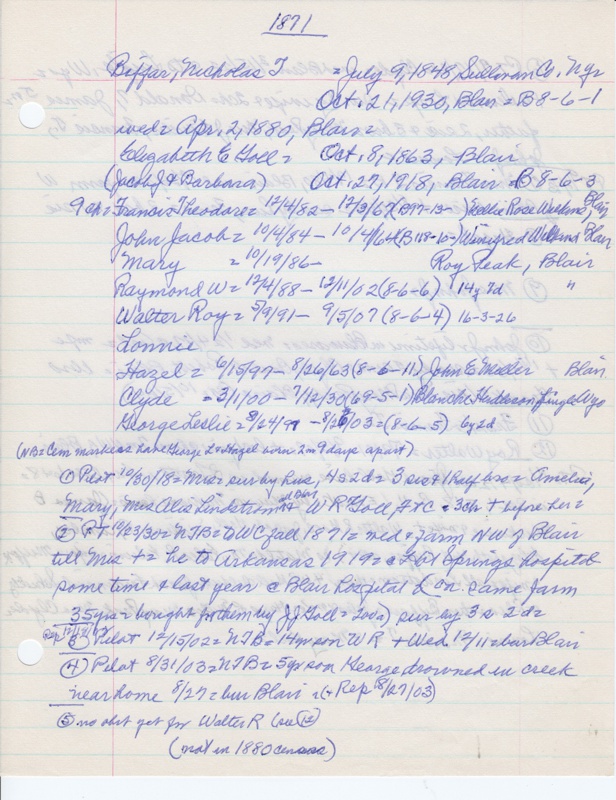 1871
Beffar, Nicholas T = July 9, 1848, Sullivan Co, Ny
Oct. 21, 1930, Blair = B8-6-1
wed = Apr. 2, 1880, Blair =
Elizabeth E Goll = Oct. 8, 1863, Blair
(Jacob J & Barbara) Oct. 27, 1918, Blair = B 8-6-3
9 ch = Francis Theodore = 12/4/82 - 12/3/67 Nellie Rose Blair
John Jacob = 10/4/84 - 10/4/64 Winifred Blair
Mary = 10/19/86 - Roy Peak, Blair
Raymond W = 12/4/88 - 12/11/02 (8-6-6) 14y 7d "
Walter Roy = 5/9/91 - 9/5/07 (8-6-4) 16-3-26
Lonnie
Hazel = 6/15/97 - 8/26/63 (8-6-11) John E Miller Blair
Clyde = 3/1/00 - 7/12/30 (69-5-1) Blanche Wyo
George Leslie = 8/24/97 - 8/26/03 = (8-6-5) 6y 2d
(NB = Cem markers have George L & Hazel born 2 m 9 days apart)
① Pilot 10/30/18 = Mrs = sur by hus, 4 s 2 d = 3 sis & 1 half sis = Amelia,
Mary, Mrs Alis Lindstrom all Blair W R Goll & + c before her =
② P + 10/23/30 = NTB = DWC fall 1871 = wed & farm NW of Blair
till Mrs + = he to Arkansas 1919 = c Hot Springs hospital
some time & last year c Blair hospital & on same farm
35 yrs = bought for them by JJ Goll = 200a) sur by 3 s 2 d =
Rep ③ Pilot 12/15/02 = NTB = 14 yr son W R + Wed 12/11 = bur Blair
④ Pilot 8/31/03 = NTB = 5 yr son George drowned in creek
near home 8/27 = bur Blair = (+ Rep 8/27/03)
⑤ no obit yet for Walter R (see
(not in 1880 census)